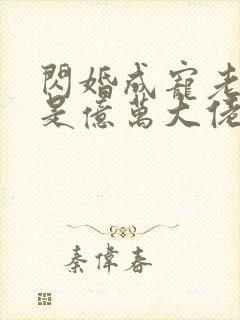 閃婚成寵老
是億萬大佬
秦偉春